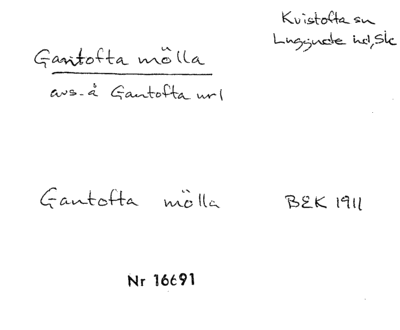 Kvistofta sn
Luggude hd, Sk
Gantofta mölla
avs. å Gantofta nr 1
Gantofta mölla BEK 1911
Nr 16691